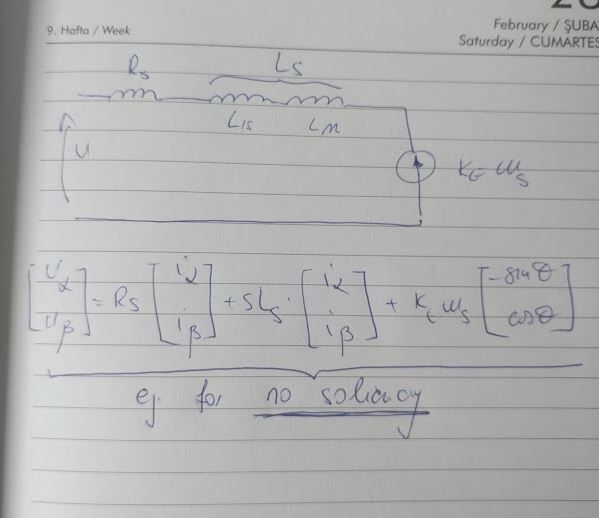 20
9. Hafta / Week
February / ŞUBA
Saturday / CUMARTES
Rs Ls
L1s Lm
U Kt ωs
[uα uβ] = Rs [iα iβ] + sLs · [iα iβ] + Kt ωs [-sinθ cosθ]
eq for no saliency